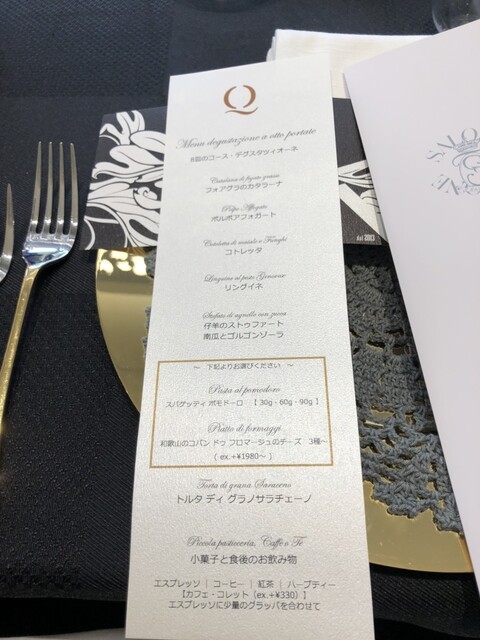 Q
Menu degustazione a otto portate
8皿のコース・デグスタツィオーネ
Catalana di fegato grasso
フォアグラのカタラーナ
Polpo Affogato
ポルポアフォガート
Cotoletta di maiale e Funghi
コトレッタ
Linguine al pesto Genovese
リングイネ
Stufato di agnello con zucca
仔羊のストゥファート
南瓜とゴルゴンゾーラ
～ 下記よりお選びください ～
Pasta al pomodoro
スパゲッティ ポモドーロ 【 30g・60g・90g 】
Piatto di formaggi
和歌山のコパン ドゥ フロマージュのチーズ 3種～
( ex.+¥1980～ )
Torta di grana Saraceno
トルタ ディ グラノサラチェーノ
Piccola pasticceria, Caffè o Tè
小菓子と食後のお飲み物
エスプレッソ | コーヒー | 紅茶 | ハーブティー
【カフェ・コレット (ex.+¥330) 】
エスプレッソに少量のグラッパを合わせて